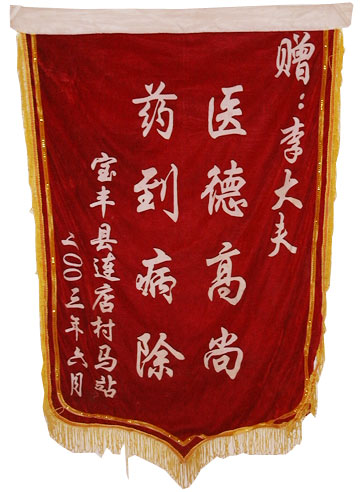 赠：李大夫
医德高尚
药到病除
宝丰县连店村马站
二00三年六月